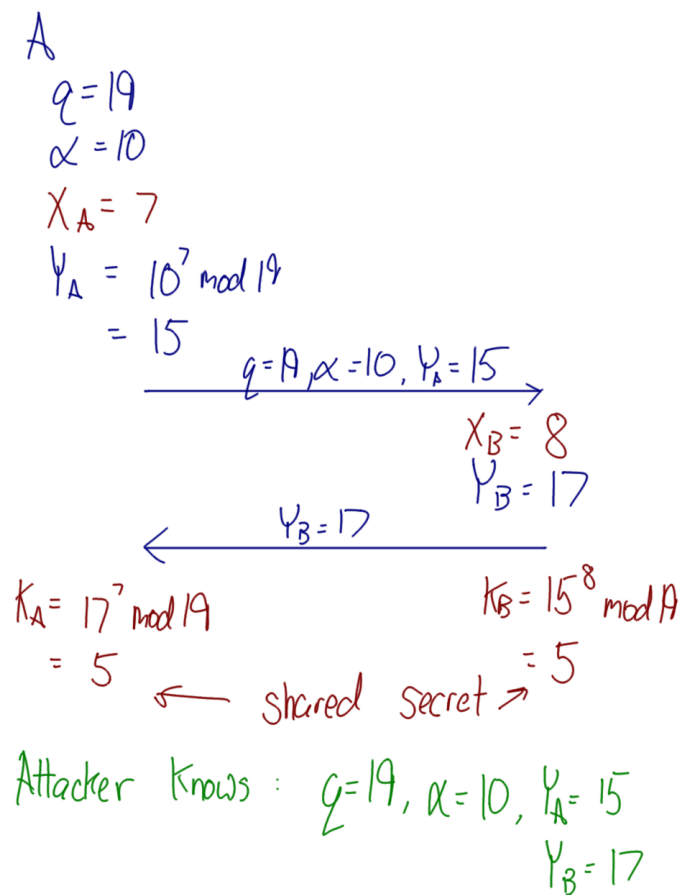 A
q = 19
α = 10
X_A = 7
Y_A = 10^7 mod 19
= 15
q = 19, α = 10, Y_A = 15
X_B = 8
Y_B = 17
Y_B = 17
K_A = 17^7 mod 19
= 5
K_B = 15^8 mod 19
= 5
← shared secret →
Attacker Knows : q = 19, α = 10, Y_A = 15
Y_B = 17